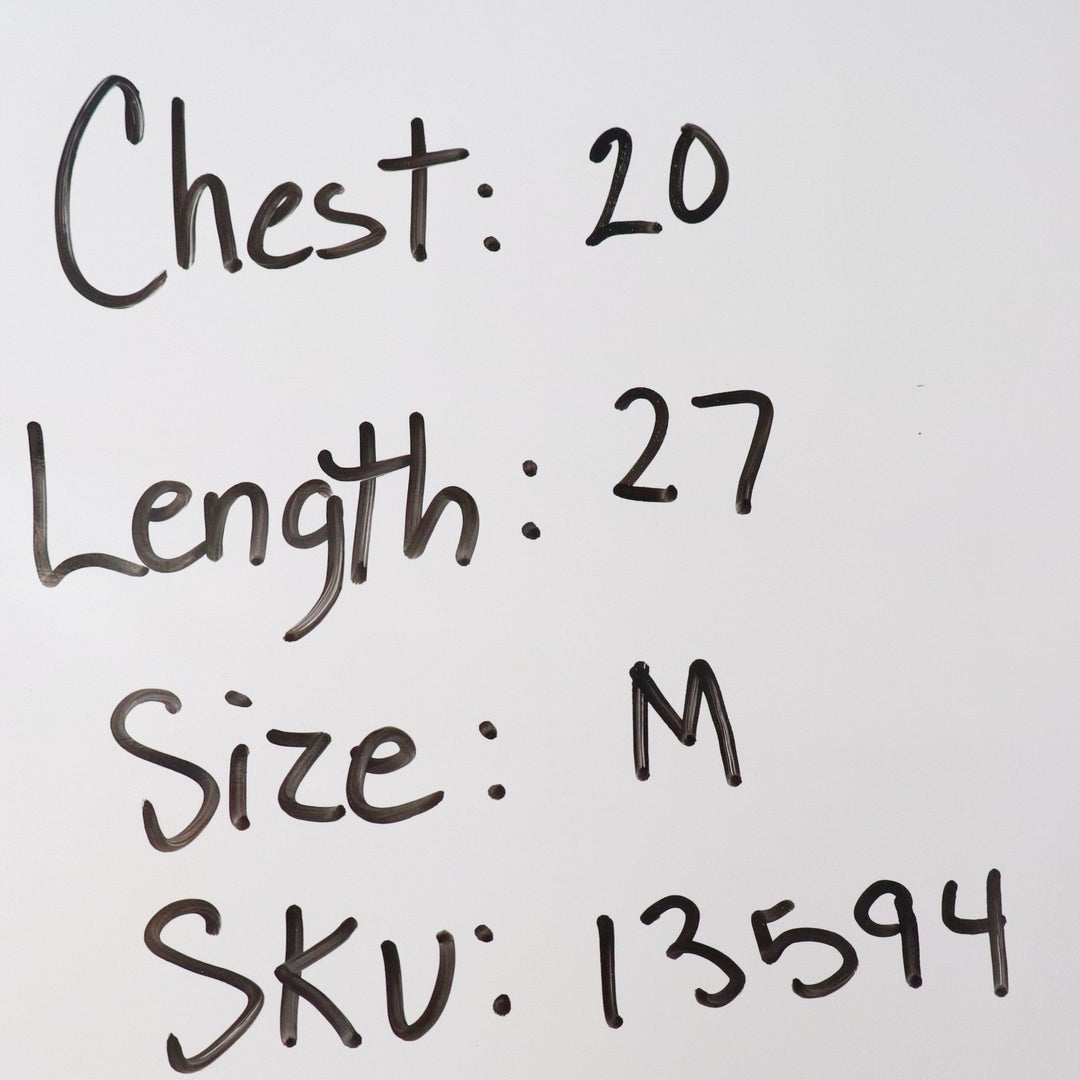 Chest: 20
Length: 27
Size: M
SKU: 13594